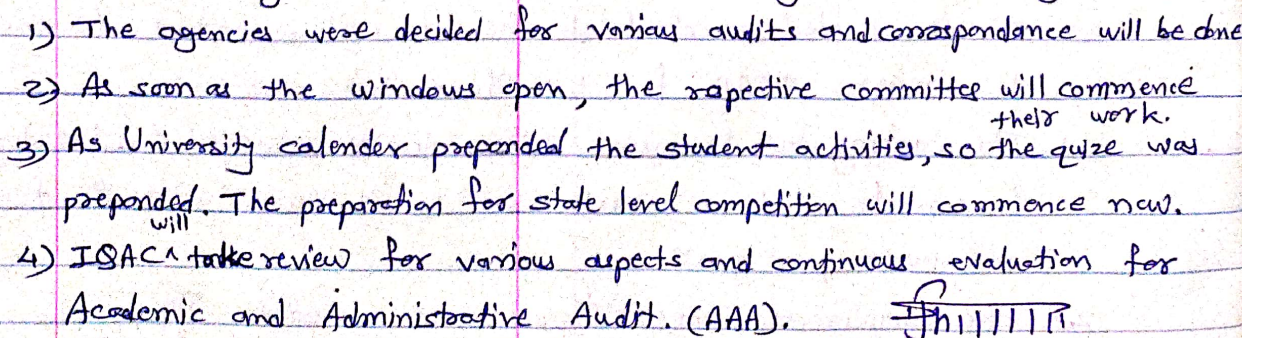 1) The agencies were decided for various audits and corraspondance will be done
2) As soon as the windows open, the rapective committee will commence
their work.
3) As University calender preponded the student activities, so the quize was
preponded. The preparation for state level competition will commence now.
4) IQAC ^ will take review for various aspects and continuous evaluation for
Academic and Administrative Audit. (AAA).